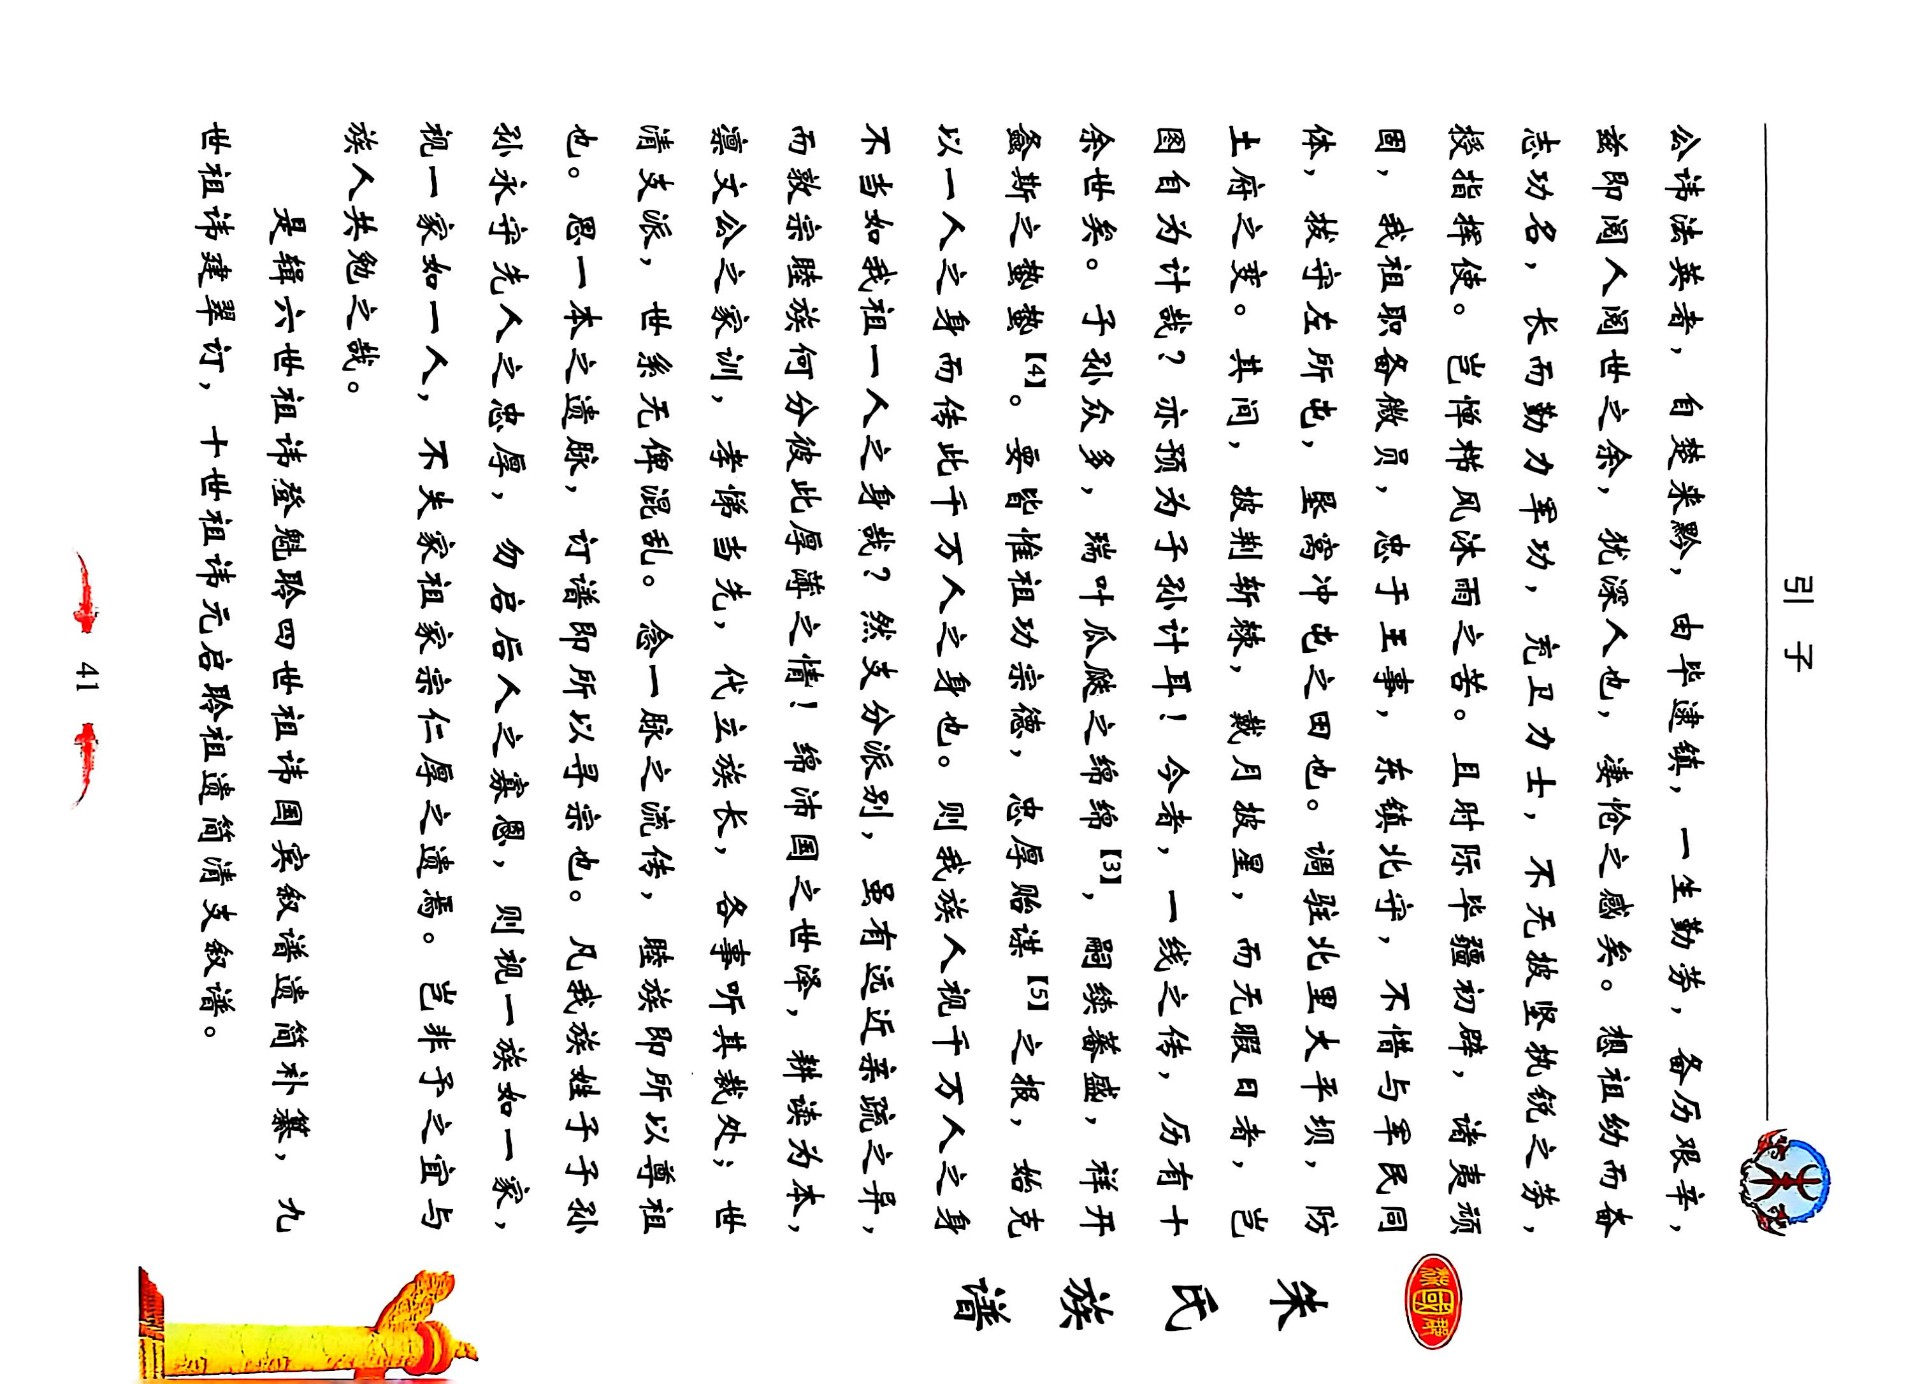 引 子
公讳法英者，自楚来黔，由毕逮镇，一生勤劳，备历艰辛，
兹即阅人阅世之余，犹深人也，凄怆之感矣。想祖幼而奋
志功名，长而勤力军功，充卫力士，不无披坚执锐之劳，
授指挥使。岂惮栉风沐雨之苦。且时际毕疆初辟，诸夷顽
固，我祖职备微员，忠于王事，东镇北守，不惜与军民同
体，拔守左所屯，垦窝冲屯之田也。调驻北里大平坝，防
土府之变。其间，披荆斩棘，戴月披星，而无暇日者，岂
图自为计哉？亦预为子孙计耳！今者，一线之传，历有十
余世矣。子孙众多，瑞叶瓜瓞之绵绵【3】，嗣续蕃盛，祥开
螽斯之蛰蛰【4】。要皆惟祖功宗德，忠厚贻谋【5】之报，始克
以一人之身而传此千万人之身也。则我族人视千万人之身
不当如我祖一人之身哉？然支分派别，虽有远近亲疏之异，
而敦宗睦族何分彼此厚薄之情！绵沛国之世泽，耕读为本，
凛文公之家训，孝悌当先，代立族长，各事听其裁处；世
清支派，世系无俾混乱。念一脉之流传，睦族即所以尊祖
也。思一本之遗脉，订谱即所以寻宗也。凡我族姓子子孙
孙永守先人之忠厚，勿启后人之寡恩，则视一族如一家，
视一家如一人，不失家祖家宗仁厚之遗焉。岂非予之宜与
族人共勉之哉。
是辑六世祖讳登魁聆四世祖讳国宾叙谱遗简补纂，九
世祖讳建翠订，十世祖讳元启聆祖遗简清支叙谱。
41
朱氏族谱